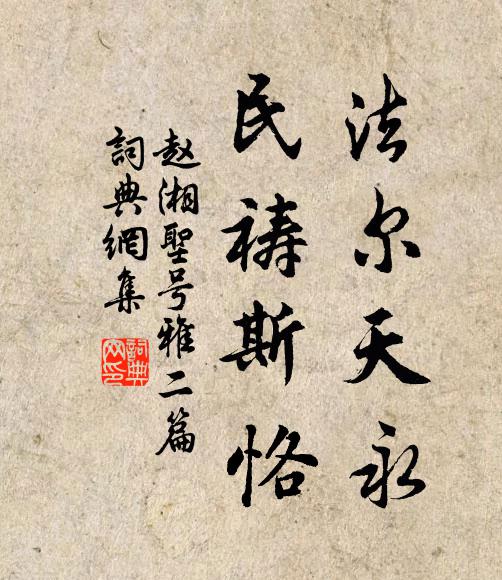 法尔天永
民祷斯恪
赵湘聖号雅二篇
詞典網集
詞典網印